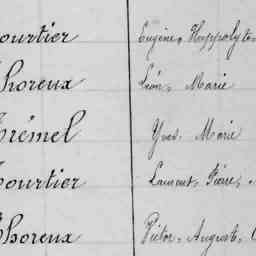 ourtier Eugène, Hyppolyte
horeux Léon, Marie
Trémel Yves, Marie
ourtier Laurent, Pierre,
Thoreux Victor, Auguste,